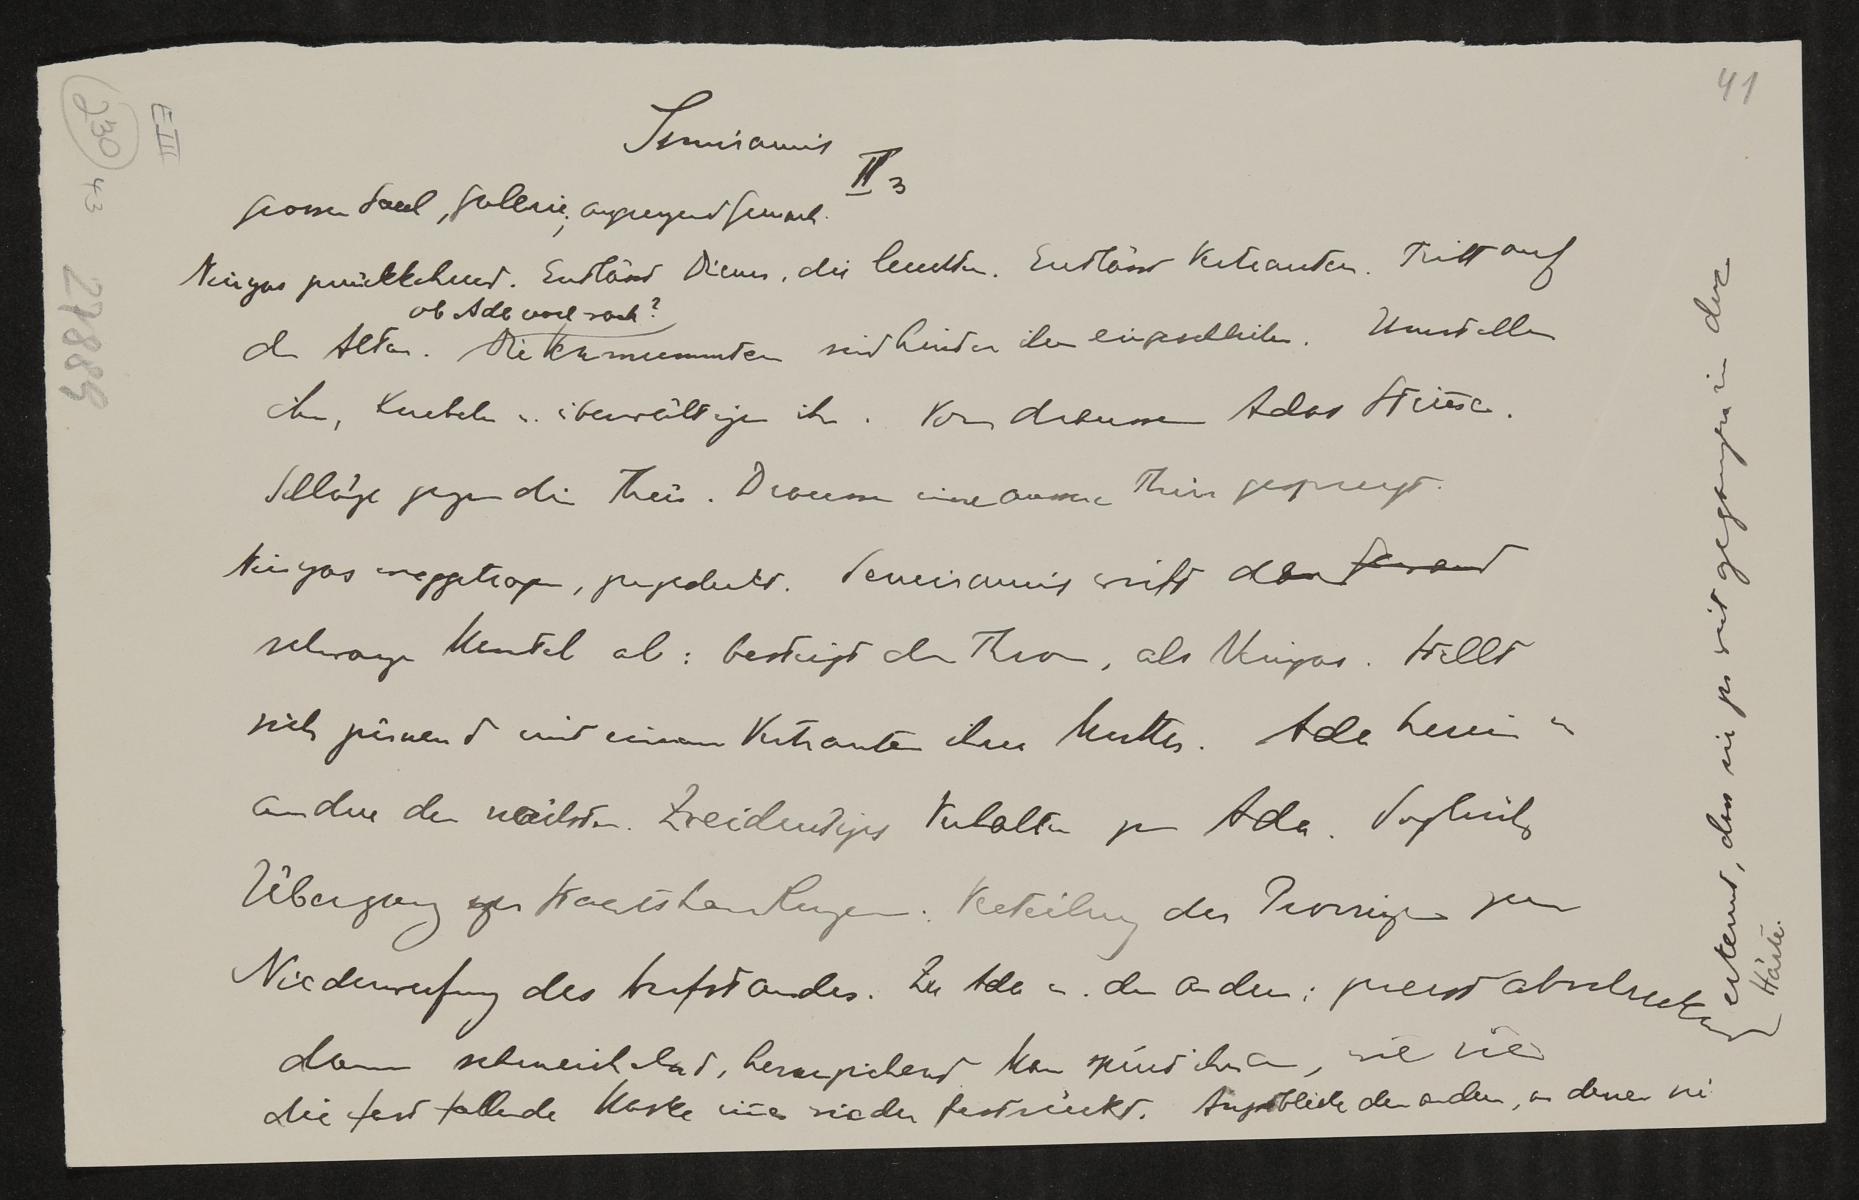 41
E III
230
43
27889
Semiramis
II 3
grosser Saal, Gallerie, angrenzend Gemach.
Ninyas zurückkehrend. Entlässt Diener, die leuchten. Entlässt Vertrauten. Tritt auf
ob Ada wach?
den Altan. Die Vermummten sind hinter ihm eingeschlichen. Umstellen
ihn, knebeln u. überwältigen ihn. Von draussen Adas Stimme.
Schläge gegen die Thür. Draussen eine äussere Thür gesprengt.
Ninyas weggetragen, zugedeckt. Semiramis wirft den
schwarzen Mantel ab: besteigt den Thron, als Ninyas. Stellt
sich zürnend mit einem Vertrauten ihrer Mutter. Ada herein u
andere der nächsten. Zweideutiges Verhalten zu Ada. Sogleich
Übergang zu Staatshandlungen. Verteilung der Provinzen zur
Niederwerfung des Aufstandes. Zu Ada u. den andern: zuerst abschreckend
dann schmeichelnd, heranziehend Man spürt ihr an, wie sie
die fast fallende Maske immer wieder festrückt. Angstblicke der andern, an denen sie
erkennt, dass sie zu weit gegangen in der
Härte.